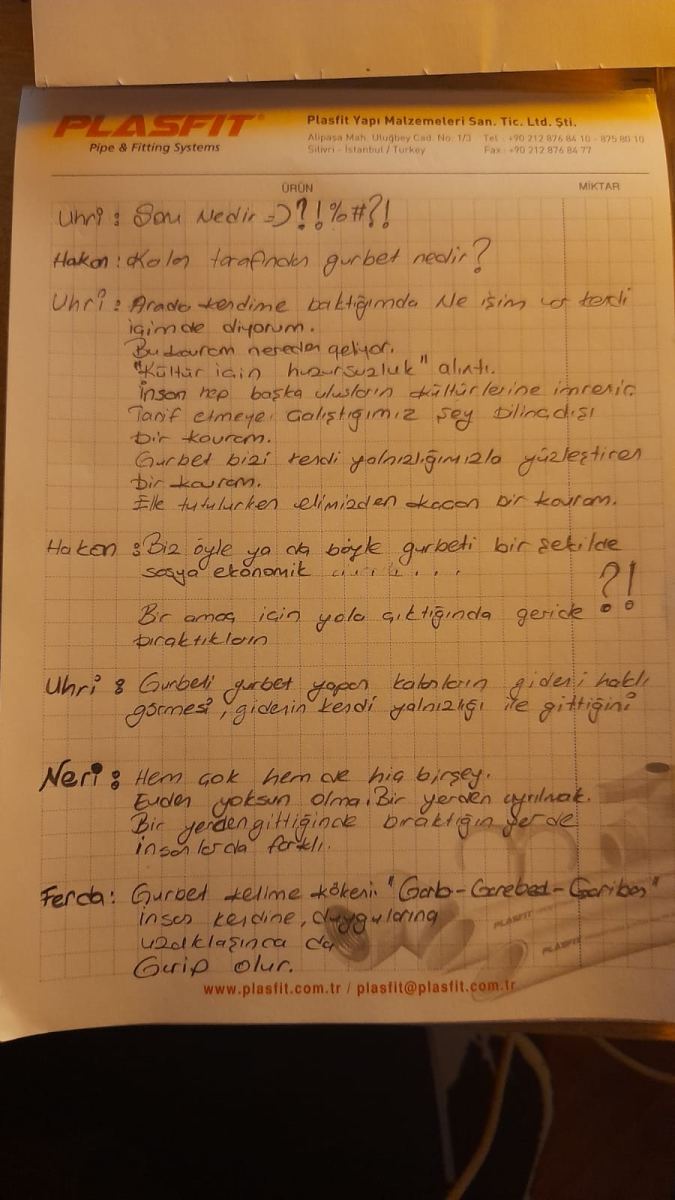 PLASFIT®
Pipe & Fitting Systems
Plasfit Yapı Malzemeleri San. Tic. Ltd. Şti.
Alipaşa Mah. Uluğbey Cad. No: 1/3 Tel : +90 212 876 84 10 - 875 80 10
Silivri - İstanbul / Turkey Fax : +90 212 876 84 77
ÜRÜN MİKTAR
Uhri : Soru Nedir =>?!%#?!
Hakan : Kalan tarafından gurbet nedir?
Uhri : Arada kendime baktığımda Ne işim var kendi
içimde diyorum.
Bu kavram nereden geliyor.
"Kültür için huzursuzluk" alıntı.
İnsan hep başka ulusların kültürlerine imrenir.
Tarif etmeye çalıştığımız şey bilinçdışı
bir kavram.
Gurbet bizi kendi yalnızlığımızla yüzleştiren
bir kavram.
Elle tutulurken elimizden kaçan bir kavram.
Hakan : Biz öyle ya da böyle gurbeti bir şekilde
sosya ekonomik ........ ?!
Bir amaç için yola çıktığında geride
bıraktıkların
Uhri : Gurbeti gurbet yapan kalanların gideni haklı
görmesi, gidenin kendi yalnızlığı ile gittiğini
Neri : Hem çok hem de hiç birşey.
Evden yoksun olma. Bir yerden ayrılmak.
Bir yerden gittiğinde bıraktığın yerde
insanlarda farklı.
Ferda : Gurbet kelime kökeni "Garb-Garebed-Gariban"
insan kendine, duygularına
uzaklaşınca da
Garip olur.
PLASFIT
PLASFIT
www.plasfit.com.tr / plasfit@plasfit.com.tr